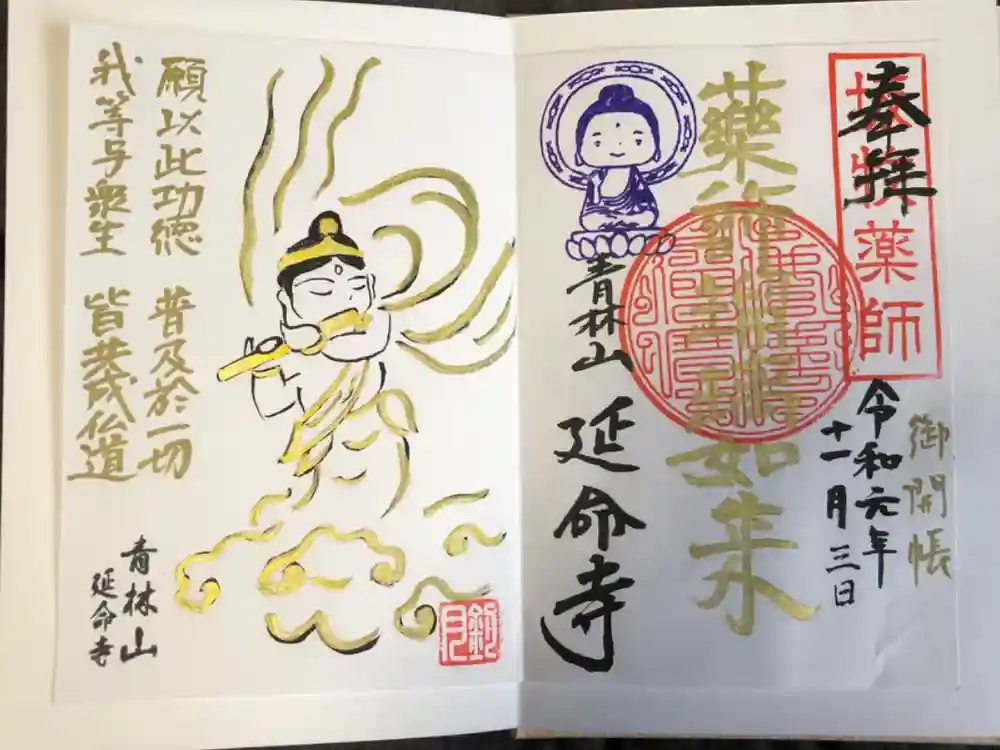 奉拝
薬師
御開帳
令和元年
十一月三日
薬師瑠璃光如来
青林山
延命寺
願以此功徳 普及於一切
我等与衆生 皆共成仏道
青林山
延命寺